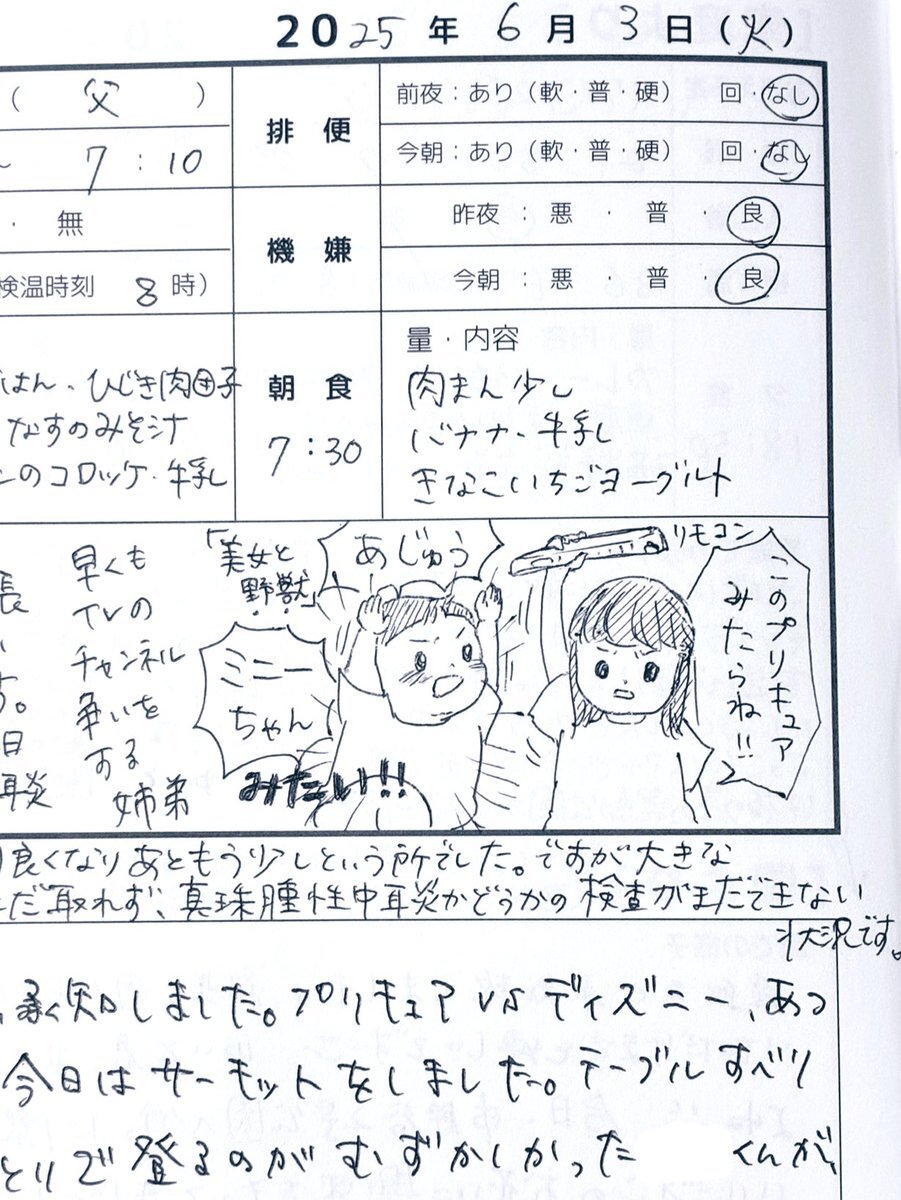 2025年 6月 3日(火)
(父)
7:10
・無
検温時刻 8時)
はん・ひじき肉団子
なすのみそ汁
のコロッケ・牛乳
排便
前夜:あり(軟・普・硬) 回・なし
今朝:あり(軟・普・硬) 回・なし
機嫌
昨夜:悪・普・良
今朝:悪 普・良
朝食
7:30
量・内容
肉まん少し
バナナ・牛乳
きなこいちごヨーグルト
長
す。
日
耳炎
早くも
TVの
チャンネル
争いを
する
姉弟
「美女と
野獣」
あじゅう
ミニー
ちゃん
みたい!!
リモコン
このプリキュア
みたらね!!
良くなりあともう少しという所でした。ですが大きな
だ取れず、真珠腫性中耳炎かどうかの検査がまだできない
状況です。
承知しました。プリキュアVSディズニー、あつ
今日はサーキットをしました。テーブルすべり
とりで登るのがむずかしかった くんが、